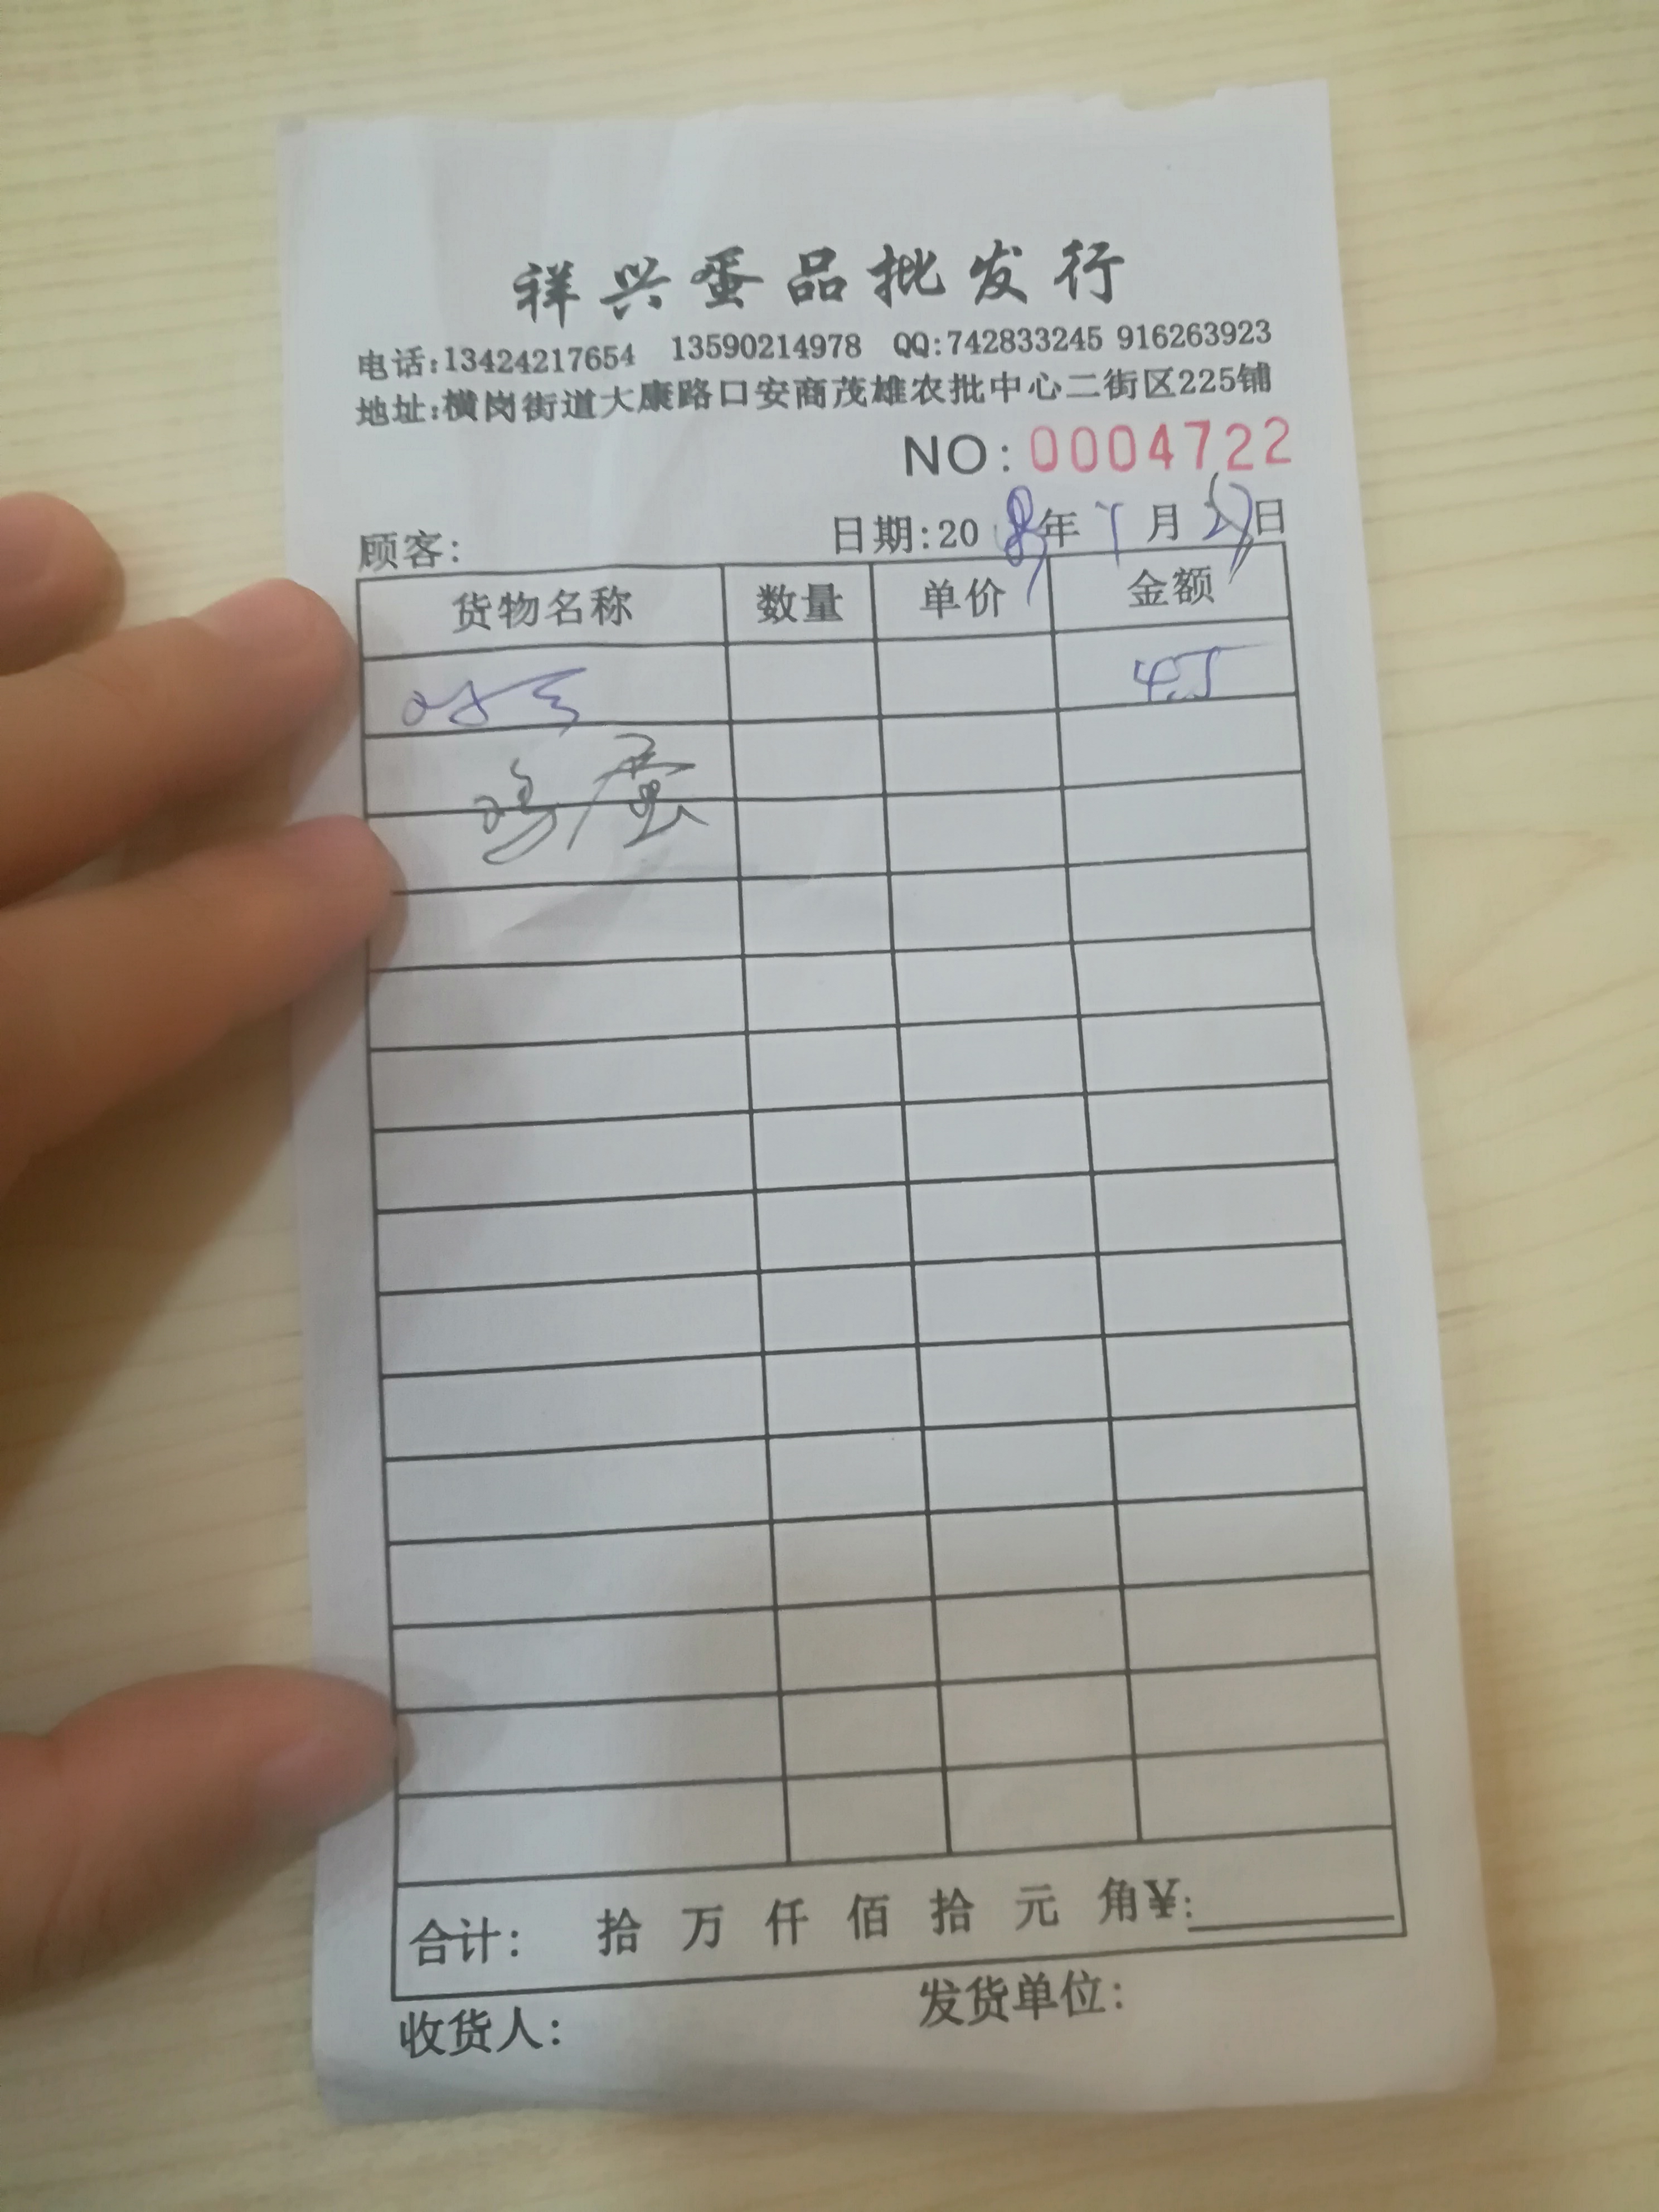 祥兴蛋品批发行
电话:13424217654 13590214978 QQ:742833245 916263923
地址:横岗街道大康路口安商茂雄农批中心二街区225铺
NO:0004722
顾客: 日期:20 年 月 日
货物名称 数量 单价 金额
鸡蛋
合计: 拾 万 仟 佰 拾 元 角¥:
收货人: 发货单位: